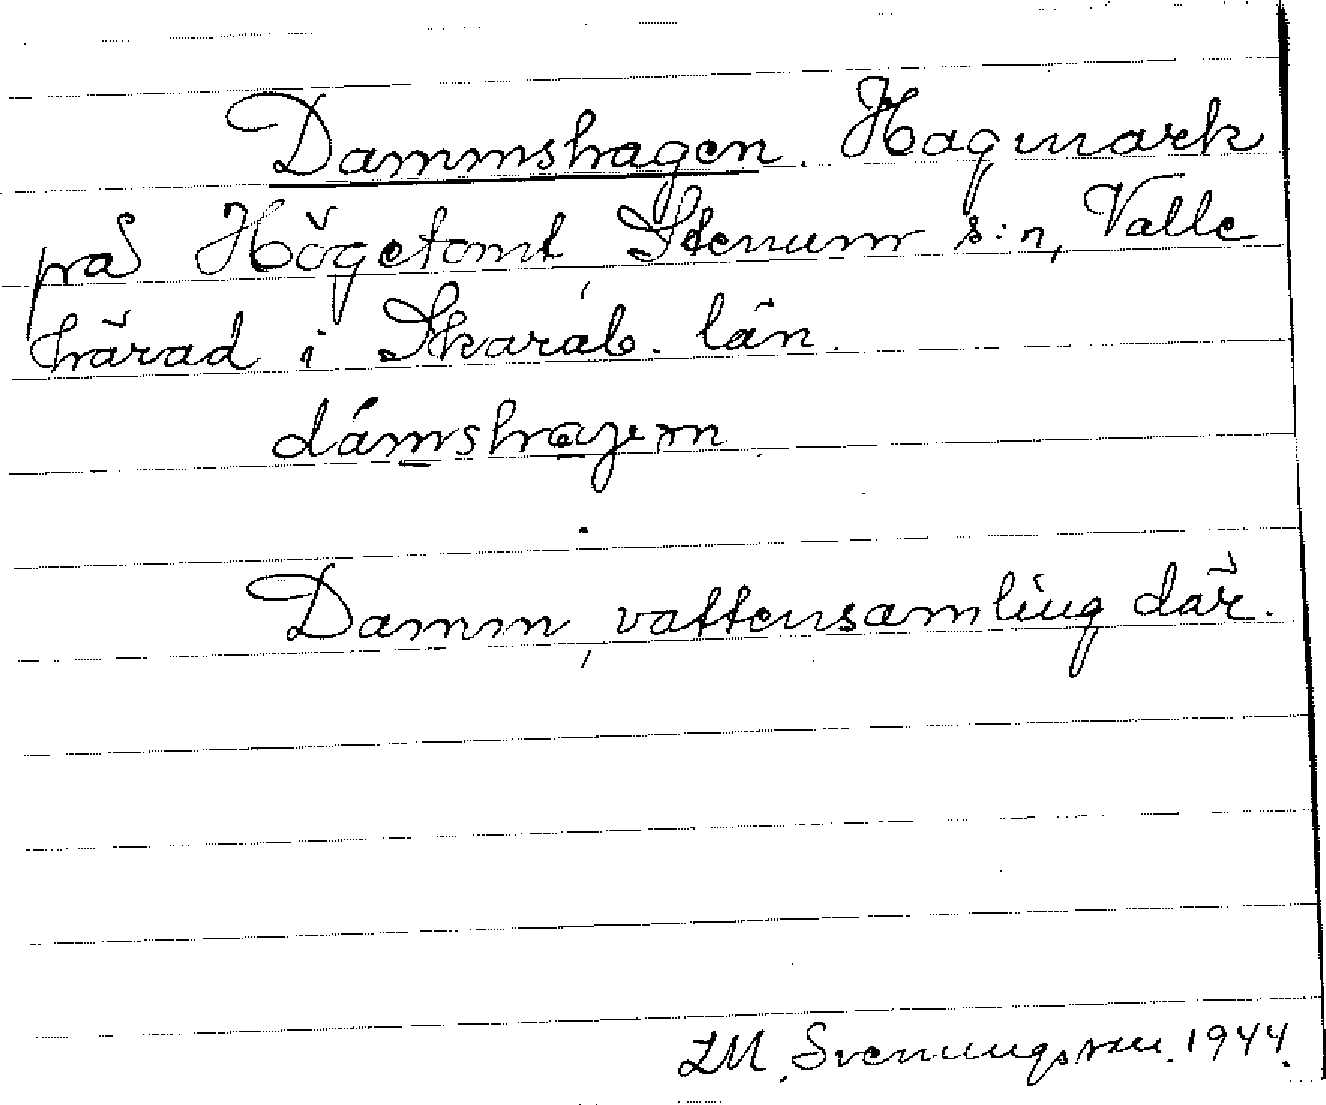 Dammshagen. Hagmark
på Högetomt, Stenum s:n, Valle
härad i Skarab. län.
dámshaγen
Damm, vattensamling där.
LM. Svenungsson. 1944.